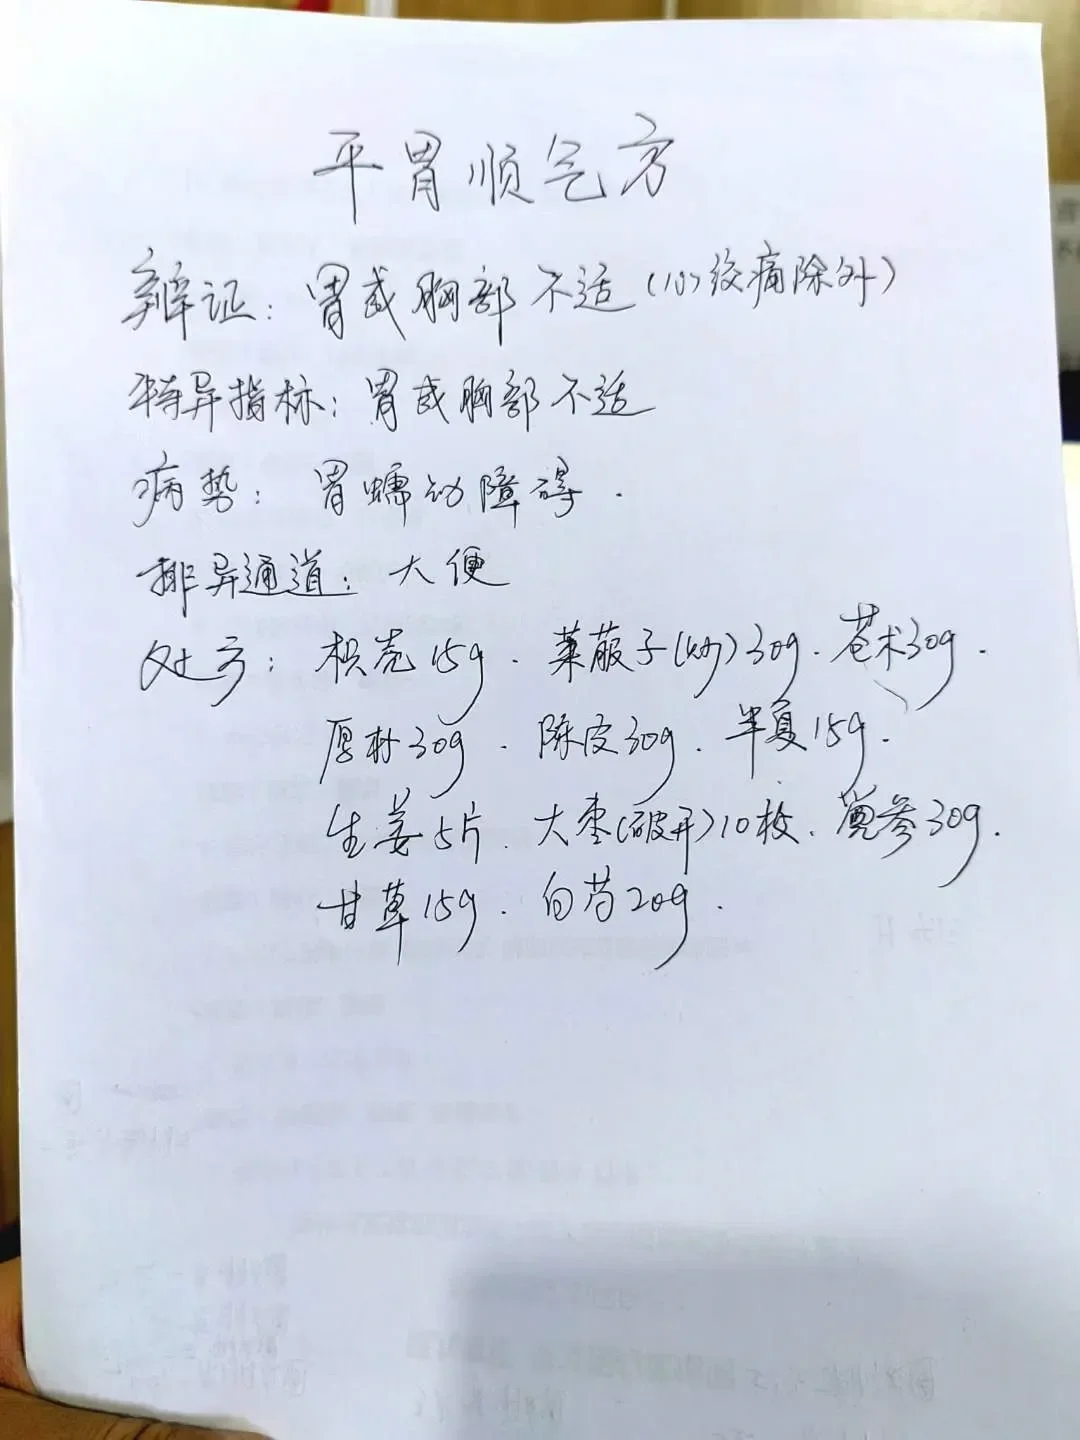 平胃顺气方
辩证：胃或胸部不适(心绞痛除外)
特异指标：胃或胸部不适
病势：胃蠕动障碍.
排异通道：大便
处方：枳壳15g.莱菔子(炒)30g.苍术30g.
厚朴30g.陈皮30g.半夏15g.
生姜5片.大枣(破开)10枚.党参30g.
甘草15g.白芍20g.